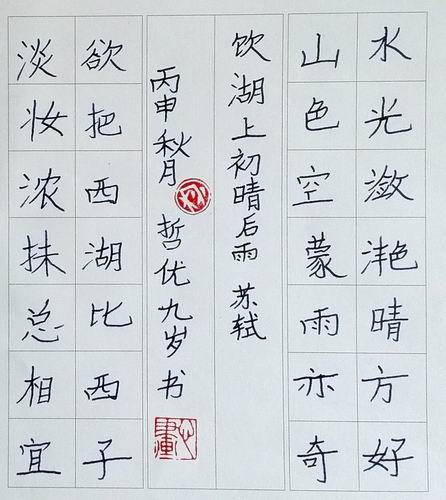 水光潋滟晴方好
山色空蒙雨亦奇
饮湖上初晴后雨 苏轼
丙申秋月 哲优九岁书
欲把西湖比西子
淡妆浓抹总相宜